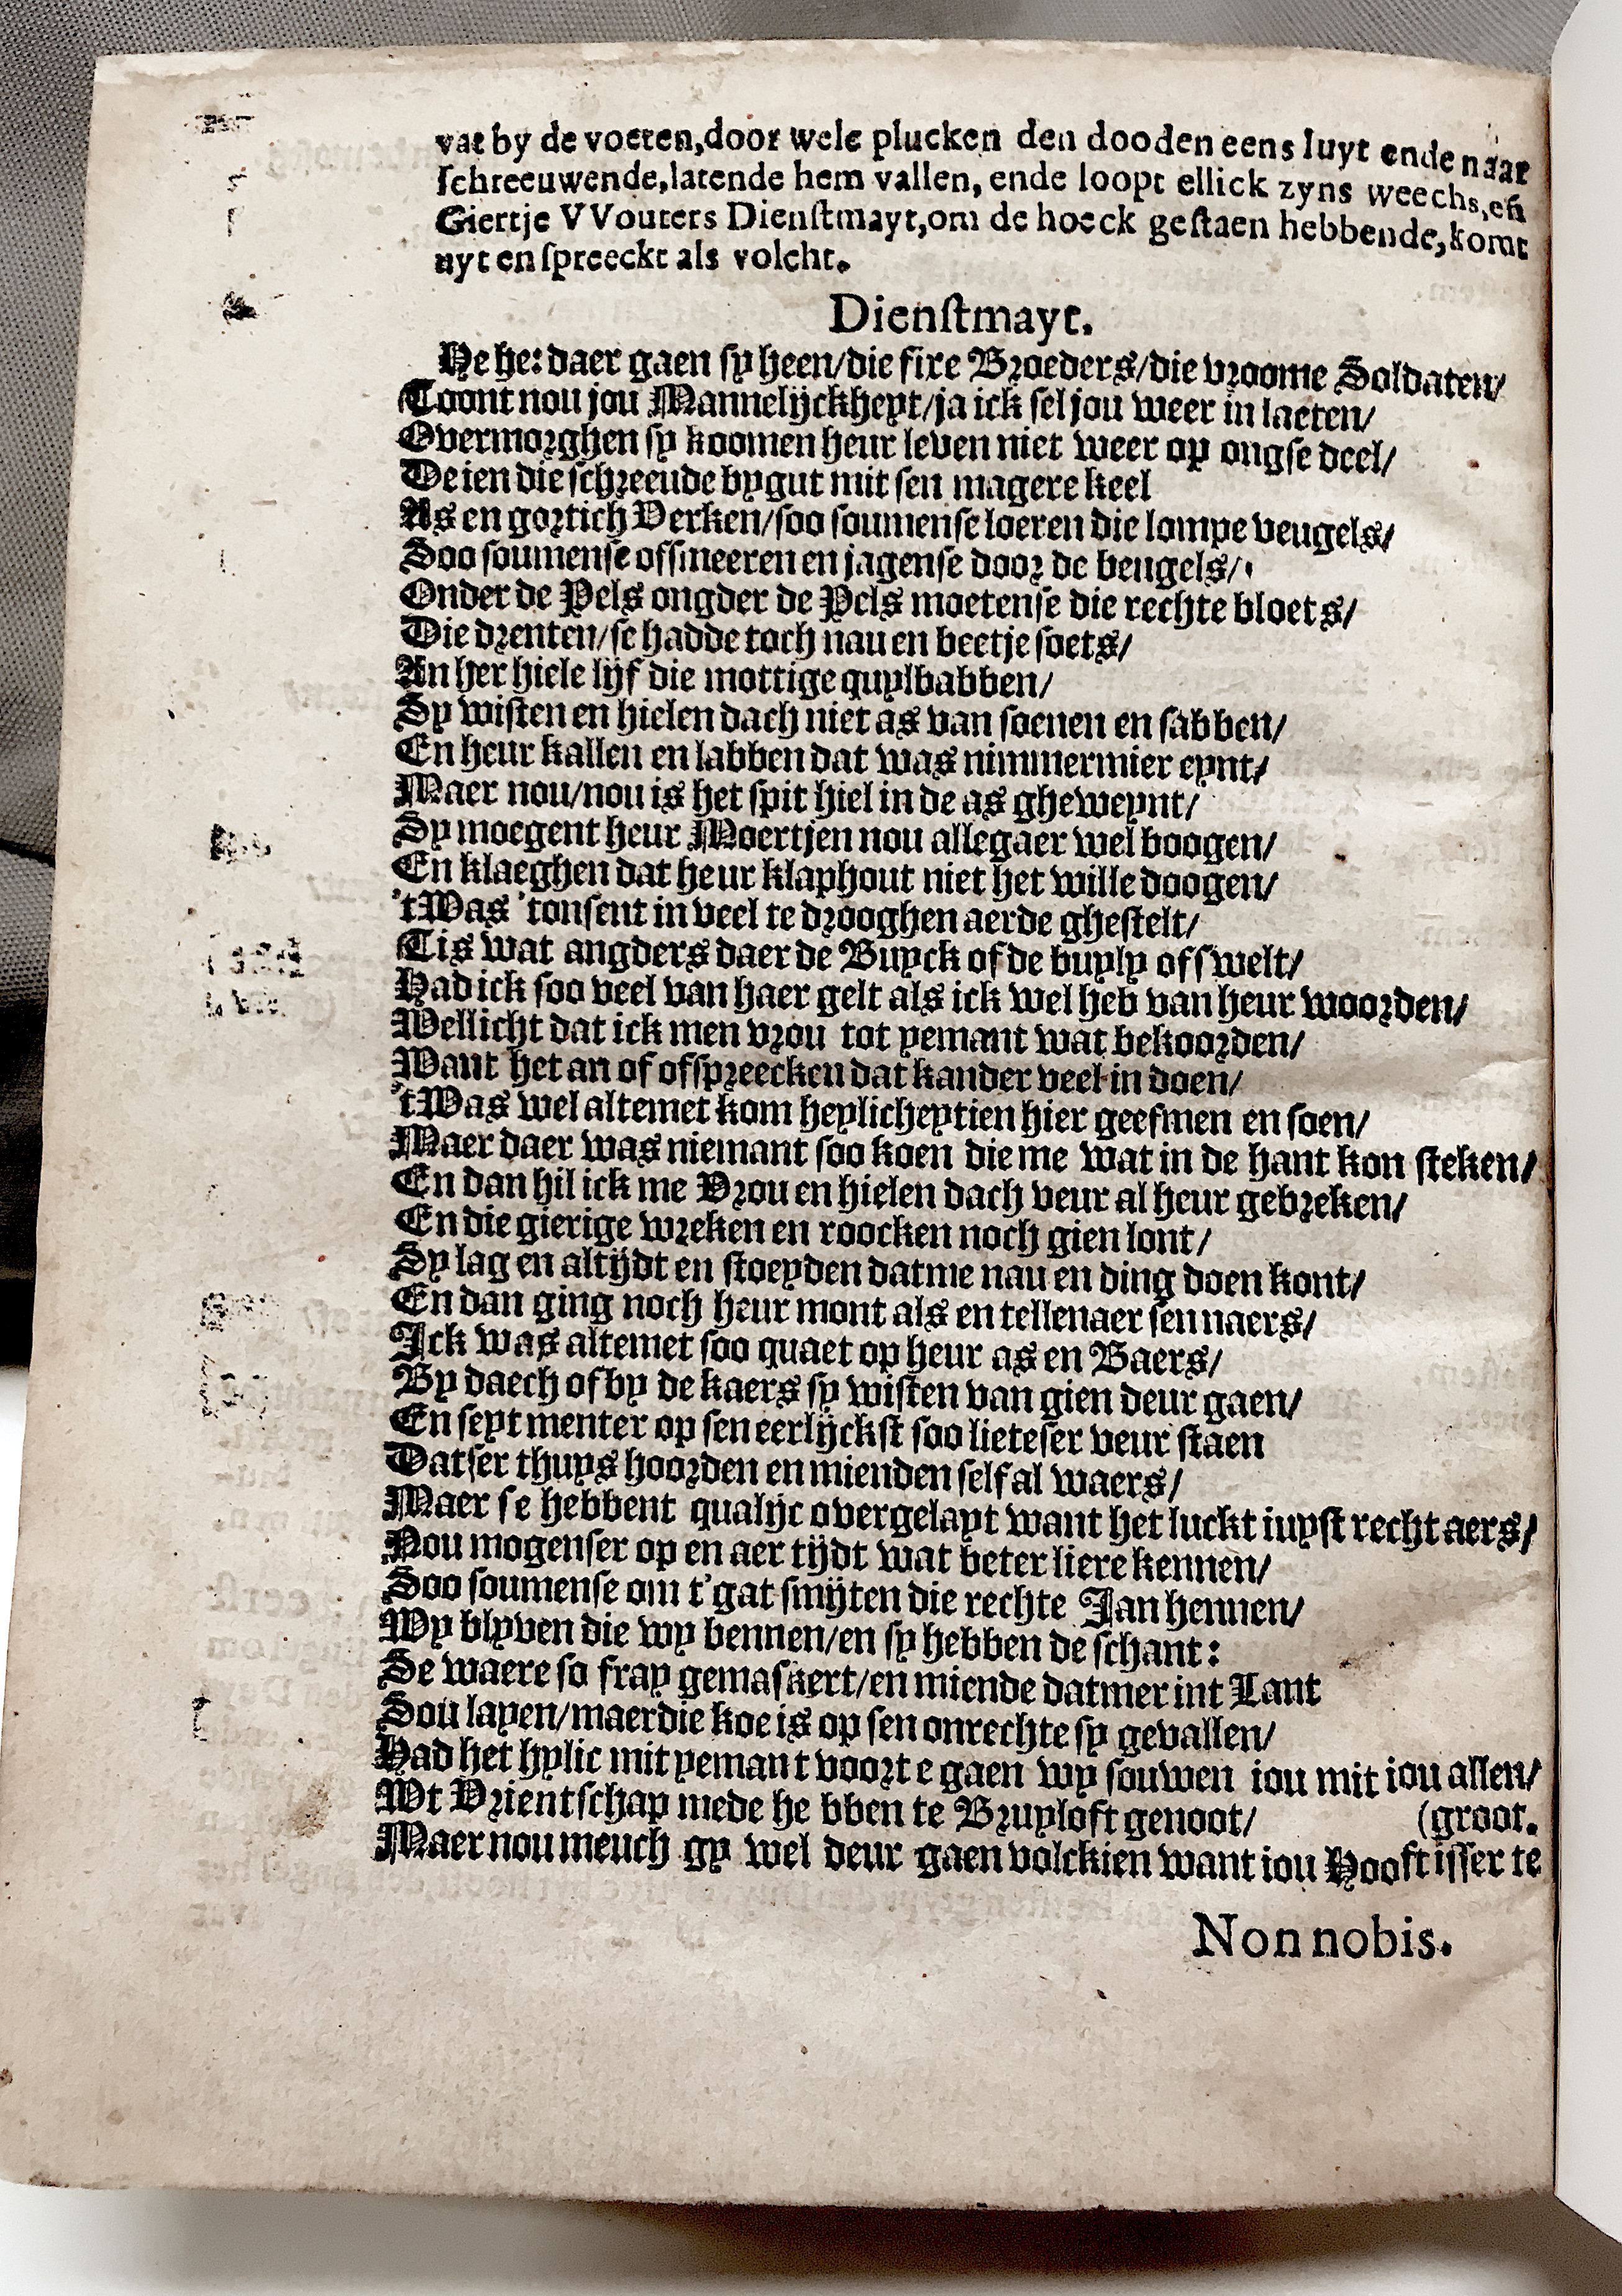 vat by de voeten, door wele plucken den dooden eens luyt ende naar
schreeuwende, latende hem vallen, ende loopt ellick zyns weechs, eñ
Giertje VVouters Dienstmayt, om de hoeck gestaen hebbende, komt
uyt en spreeckt als volcht.
Dienstmayt.
He he: daer gaen sy heen/die fixe Broeders/die vroome Soldaten/
Toont nou jou Mannelijckheyt/ja ick sel jou weer in laeten/
Overmorghen sy koomen heur leven niet weer op ongse deel/
De ien die schreeude bygut mit sen magere keel
As en gortich Verken/soo soumense loeren die lompe veugels/
Soo soumense offmeeren en jagense door de beugels/
Onder de Pels ongder de Pels moetense die rechte bloets/
Die drenten/se hadde toch nau en beetje soets/
An her hiele lijf die mottige quylbabben/
Sy wisten en hielen dach niet as van soenen en sabben/
En heur kallen en labben dat was nimmermier eynt/
Maer nou/nou is het spit hiel in de as gheweynt/
Sy moegent heur Moertjen nou allegaer wel boogen/
En klaeghen dat heur klaphout niet het wille doogen/
'tWas 'tonsent in veel te drooghen aerde ghestelt/
Tis wat angders daer de Buyck of de buyly offwelt/
Had ick soo veel van haer gelt als ick wel heb van heur woorden/
Wellicht dat ick men vrou tot yemant wat bekoorden/
Want het an of ofspreecken dat kander veel in doen/
'tWas wel altemet kom heylicheytien hier geefmen en soen/
Maer daer was niemant soo koen die me wat in de hant kon steken/
En dan hil ick me Vrou en hielen dach veur al heur gebreken/
En die gierige wreken en roocken noch gien lont/
Sy lag en altijdt en stoeyden datme nau en ding doen kont/
En dan ging noch heur mont als en tellenaer sen naers/
Ick was altemet soo quaet op heur as en Baers/
By daech of by de kaers sy wisten van gien deur gaen/
En seyt menter op sen eerlijckst soo lieteser veur staen
Datser thuys hoorden en mienden self al waers/
Maer se hebbent qualijc overgelayt want het luckt iuyst recht aers/
Nou mogenser op en aer tijdt wat beter liere kennen/
Soo soumense om t'gat smijten die rechte Jan hennen/
Wy blyven die wy bennen/en sy hebben de schant:
Se waere so fray gemaskert/en miende datmer int Lant
Sou layen/maer die koe is op sen onrechte sy gevallen/
Had het hylic mit yemant voort e gaen wy souwen iou mit iou allen/
Wt Vrientschap mede he bben te Bruyloft genoot/ (groot.
Maer nou meuch gy wel deur gaen volckien want iou Hooft isser te
Non nobis.